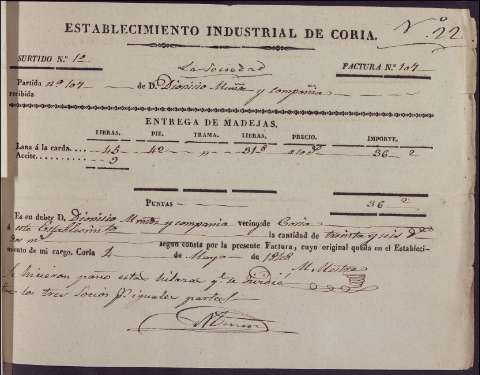 N.o 22
ESTABLECIMIENTO INDUSTRIAL DE CORIA.
SURTIDO N.º 1º La Sociedad FACTURA N.º 104
Partida nº 104 de D. Dionisio Muñoz y compañia
recibida
ENTREGA DE MADEJAS.
LIBRAS. PIE. TRAMA. LIBRAS. PRECIO. IMPORTE.
Lana á la carda.... 45 42 " 36 2
Aceite....... 9
PUNTAS 36 2
Es en deber D. Dionisio Muñoz y compania vecino de Coria
á este Establecimto la cantidad de treinta y seis
dos mrs segun consta por la presente Factura, cuyo original queda en el Estableci-
miento de mi cargo. Coria 2 de Mayo de 1848
M. Mestra
Se hicieron para esta hilaza qe se dividió
los tres Socios pr iguales partes